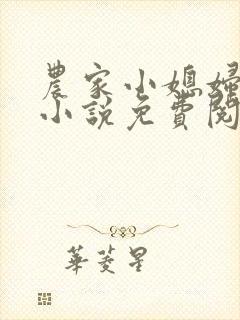 農家小媳婦
小說免費閱
華菱星